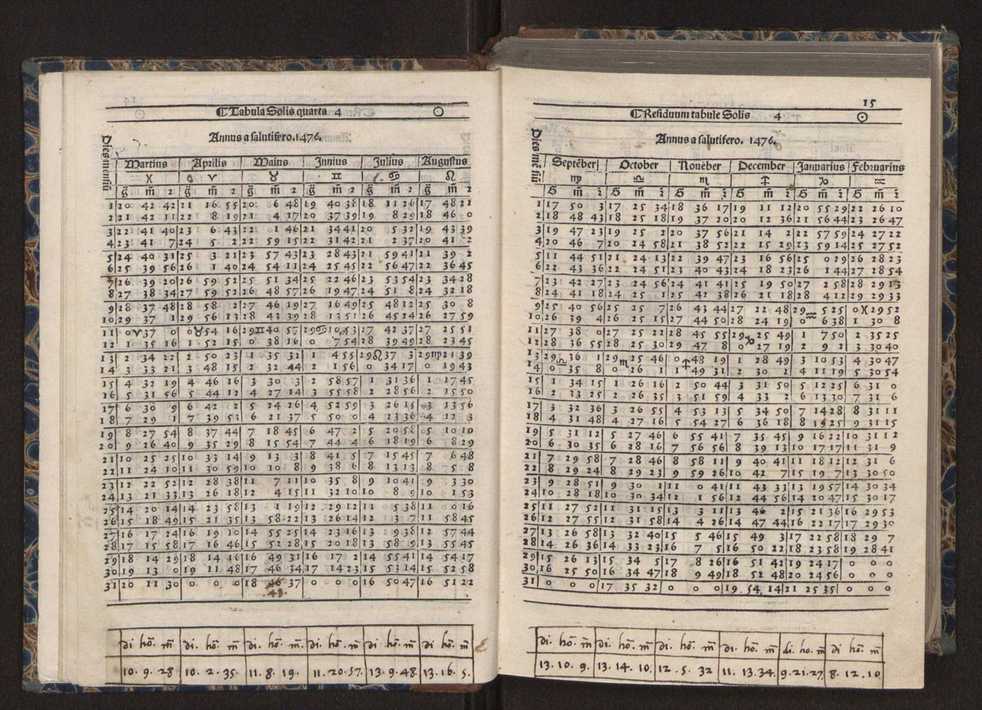 Tabula Solis quarta 4 ☉
Annus a salutifero. 1476.
Dies mensis
Martius Aprilis Maius Junius Julius Augustus
♓ ♈ ♉ ♊ ♋ ♌
g̃ m̃ 2 g̃ m̃ 2 g̃ m̃ 2 g̃ m̃ 2 g̃ m̃ 2 g̃ m̃ 2
1 20 42 42 21 16 55 20 6 48 19 40 38 18 11 26 17 48 21
2 21 42 11 22 8 19 21 4 17 20 37 39 19 8 29 18 46 0
3 22 41 40 23 6 43 22 1 46 21 34 41 20 5 32 19 43 39
4 23 41 7 24 5 2 22 59 15 22 31 42 21 2 37 20 41 2
5 24 40 31 25 3 21 23 57 43 23 28 43 21 59 41 21 39 2
6 25 39 56 26 1 40 24 54 11 24 25 45 22 56 47 22 36 45
7 26 39 20 26 59 52 25 51 34 25 22 46 23 53 54 23 34 28
8 27 38 34 27 59 52 26 48 57 26 19 47 24 51 8 24 32 18
9 28 37 48 28 58 2 27 46 19 27 16 49 25 48 12 25 30 8
10 29 37 1 29 56 13 28 43 39 28 13 51 26 45 24 26 27 59
11 0 ♈ 37 0 0 ♉ 54 16 29 ♊ 40 57 29 ♋ 10 53 27 42 37 27 25 51
12 1 35 16 1 52 15 0 38 16 0 7 54 28 39 49 28 23 45
13 2 34 22 2 50 23 1 35 32 1 4 55 29 ♌ 37 3 29 ♍ 21 39
14 3 33 21 3 48 15 2 32 44 2 1 56 0 34 17 0 19 43
15 4 32 19 4 46 16 3 30 3 2 58 57 1 31 36 1 17 45
16 5 31 56 5 44 12 4 27 14 3 55 58 2 28 56 2 15 50
17 6 30 9 6 42 2 5 24 26 4 52 59 3 26 15 3 13 56
18 7 29 1 7 39 51 6 21 37 5 50 0 4 23 36 4 12 3
19 8 27 54 8 37 44 7 18 45 6 47 2 5 20 58 5 10 10
20 9 26 40 9 35 29 8 15 54 7 44 4 6 18 19 6 8 29
21 10 25 25 10 33 14 9 13 3 8 41 5 7 15 45 7 6 48
22 11 24 10 11 30 59 10 10 8 9 38 6 8 13 13 8 5 8
23 12 22 52 12 28 38 11 7 11 10 35 8 9 10 41 9 3 30
24 13 21 33 13 26 18 12 4 15 11 32 10 10 8 9 10 1 53
25 14 20 14 14 23 58 13 1 19 12 29 12 11 5 38 11 0 16
26 15 18 49 15 21 35 13 58 22 13 26 14 12 3 7 11 58 45
27 16 17 24 16 19 10 14 55 25 14 23 16 13 0 38 12 57 44
28 17 15 58 17 16 46 15 52 28 15 20 18 13 58 9 13 55 45
29 18 14 29 18 14 16 16 49 31 16 17 2 14 55 41 14 54 17
30 19 13 0 19 11 48 17 46 34 17 14 23 15 53 14 15 52 58
31 20 11 30 0 0 0 18 46 37 0 0 0 16 50 47 16 51 22
43.
di hõ. m̃ di. hõ. m̃ di. hõ. m̃ di. hõ. m̃ di. hõ. m̃ di. hõ. m̃
10. 9. 28 10. 2. 35. 11. 8. 19. 11. 20. 57. 13. 9. 48. 13. 16. 5.
15
Residuum tabule Solis 4 ☉
Annus a salutifero. 1476.
Dies mẽsis
Septẽber October Nouẽber December Januarius Februarius
♍ ♎ ♏ ♐ ♑ ♒
G m̃ 2 G m̃ 2 G m̃ 2 G m̃ 2 G m̃ 2 G m̃ 2
1 17 50 3 17 25 34 18 36 17 19 11 12 20 55 29 22 26 10
2 18 48 43 18 25 18 19 37 20 20 12 36 21 56 44 23 26 47
3 19 47 23 19 25 2 20 37 56 21 14 2 22 57 59 24 27 22
4 20 46 7 20 24 58 21 38 52 22 15 29 23 59 14 25 27 52
5 21 44 51 21 24 13 22 39 47 23 16 56 25 0 29 26 28 23
6 22 43 36 22 24 51 23 40 43 24 18 23 26 1 44 27 28 54
7 23 42 27 23 24 56 24 41 41 25 19 50 27 2 58 28 29 13
8 24 41 18 24 25 1 25 42 38 26 21 18 28 4 12 29 29 33
9 25 40 56 25 25 7 26 43 44 27 22 48 29 ♒ 5 25 0 ♓ 29 52
10 26 39 4 26 25 15 27 44 50 28 24 19 0 6 38 1 30 8
11 27 38 0 27 25 22 28 45 55 29 ♑ 25 49 1 7 50 2 35 25
12 28 36 55 28 25 30 29 47 8 0 27 19 2 9 2 3 30 40
13 29 ♎ 36 1 29 ♏ 25 46 0 ♐ 48 19 1 28 49 3 10 53 4 30 47
14 0 35 8 0 26 1 1 49 31 2 30 2 4 11 19 5 30 54
15 1 34 15 1 26 16 2 50 44 3 31 50 5 12 25 6 31 0
16 2 13 25 2 26 35 3 51 59 4 33 2 6 13 30 7 31 6
17 3 32 36 3 26 55 4 53 13 5 34 50 7 14 28 8 31 11
18 4 31 48 4 27 16 5 54 27 6 36 18 8 19 25 9 31 15
19 5 31 12 5 27 46 6 55 41 7 35 45 9 16 22 10 31 12
20 6 30 35 6 28 16 7 56 56 8 39 13 10 17 17 11 31 9
21 7 29 58 7 28 46 8 58 11 9 40 41 11 18 12 12 31 6
22 8 29 24 8 29 23 9 59 26 10 42 7 11 19 7 13 30 50
23 9 28 51 9 30 1 11 0 41 11 43 33 13 19 57 14 30 34
24 10 28 18 10 30 34 12 1 56 12 44 56 14 20 47 15 30 17
25 11 27 52 11 31 15 13 3 11 13 46 2 15 21 36 16 29 53
26 12 27 55 12 31 58 14 4 26 14 47 44 16 22 17 17 29 30
27 13 26 58 13 32 40 15 5 46 15 49 3 17 22 58 18 29 7
28 14 26 36 14 33 23 16 7 5 16 50 22 18 23 58 19 28 41
29 15 26 13 15 34 5 17 8 26 16 51 42 19 24 17 0 0 0
30 16 25 50 16 34 47 18 9 49 18 52 48 20 24 56 0 0 0
31 0 0 0 17 35 32 0 0 0 19 54 14 21 25 35 0 0 0
di. hõ. m̃ di. hõ. m̃ di. hõ. m̃ di. hõ. m̃ di. hõ. m̃ di hõ. m̃
13. 10. 9. 13. 14. 10. 12. 5. 32 11. 13. 34. 9. 21. 27. 8. 12. 10